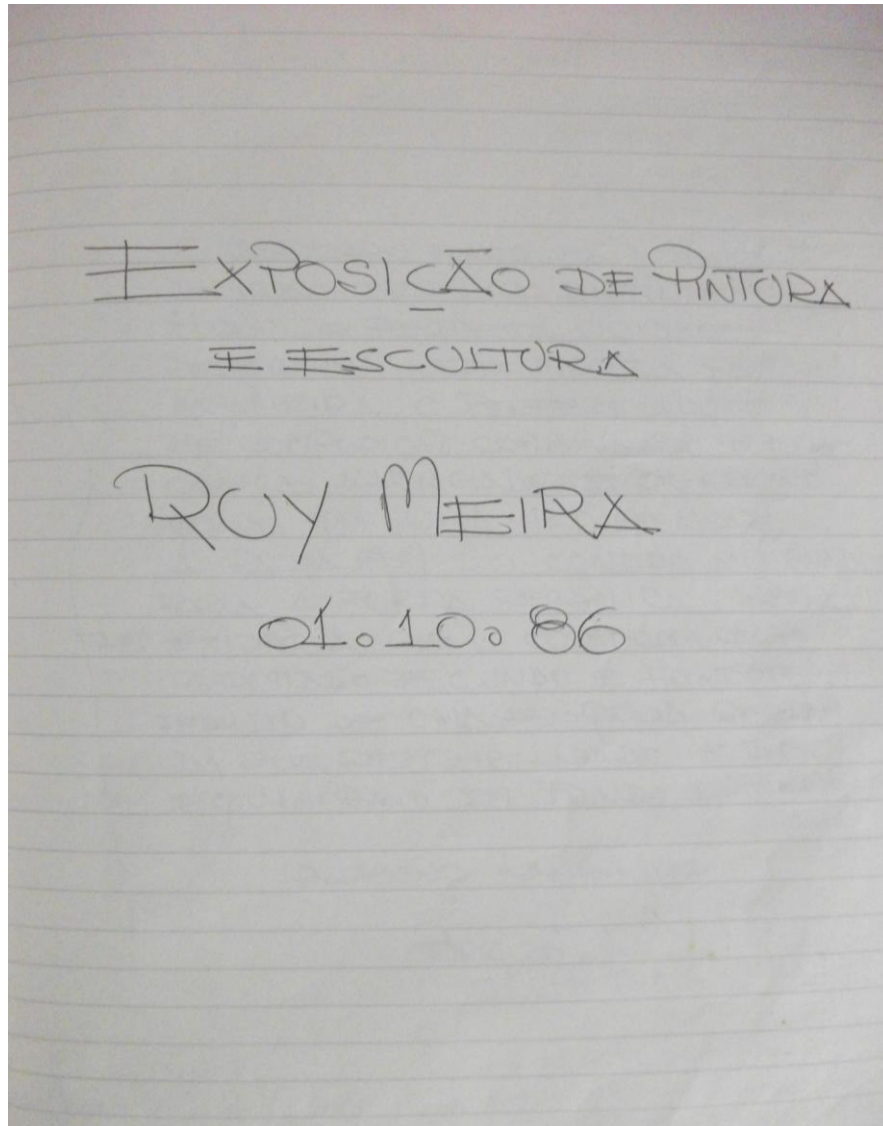 EXPOSIÇÃO DE PINTURA
E ESCULTURA
RUY MEIRA
01.10.86